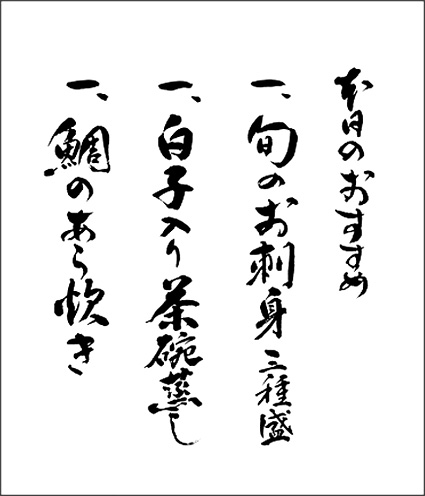 本日のおすすめ
一、旬のお刺身三種盛
一、白子入り茶碗蒸し
一、鯛のあら炊き